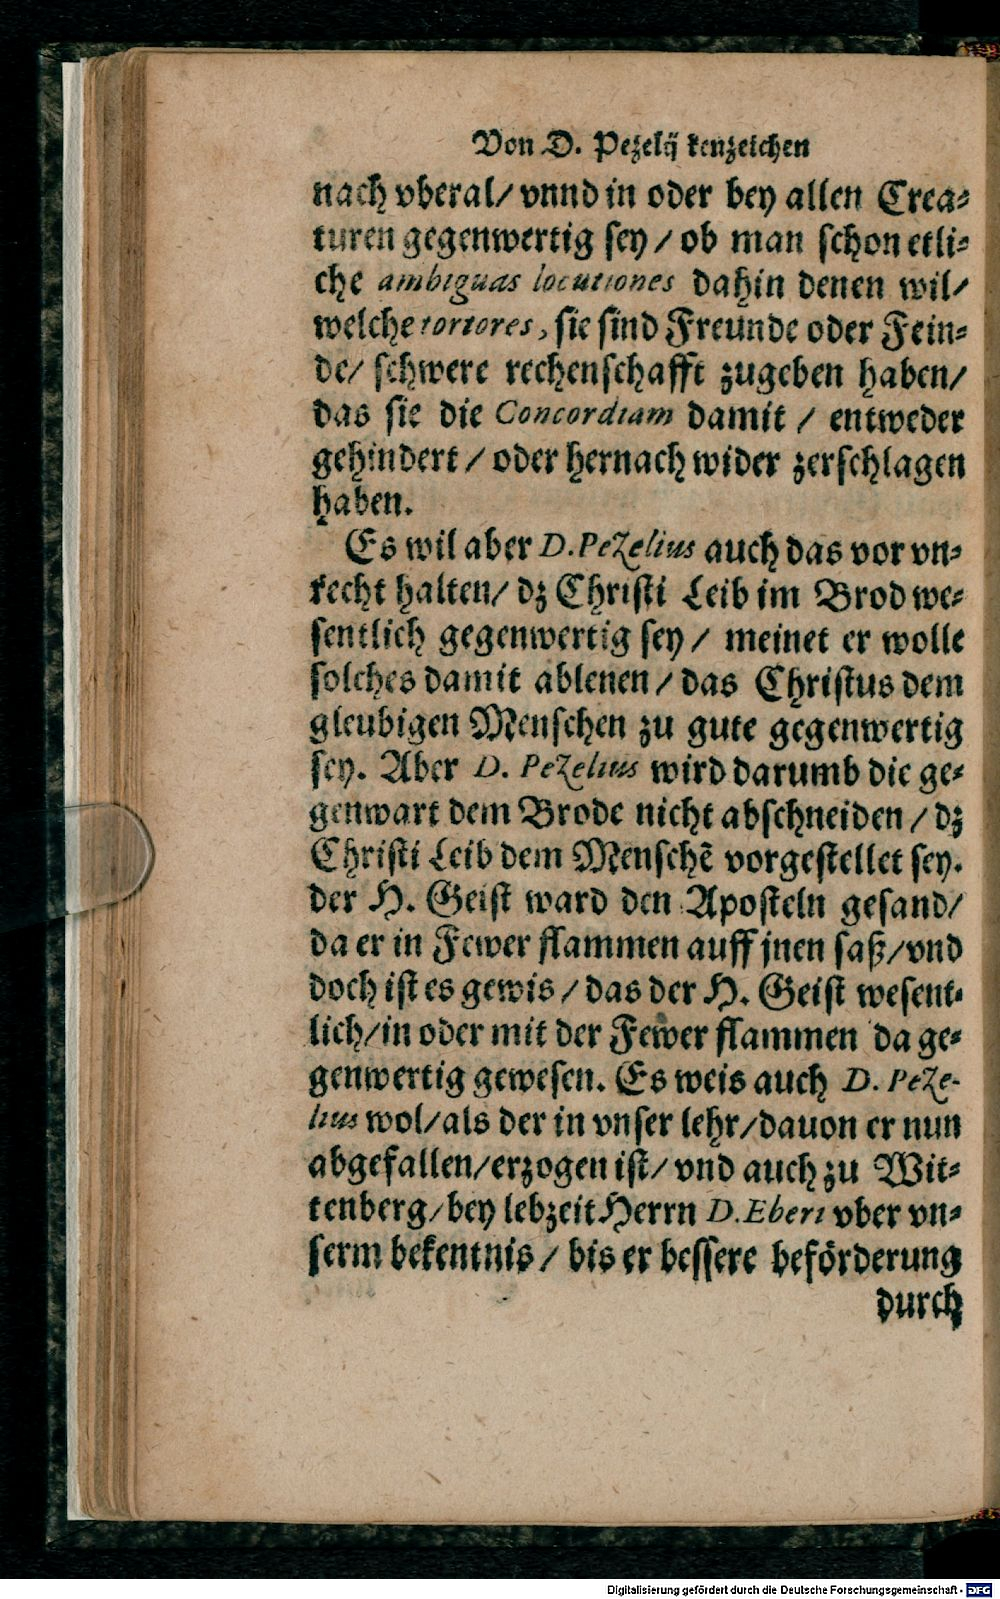 Von D. Pezelij kenzeichen
nach vberal/ vnnd in oder bey allen Crea-
turen gegenwertig sey / ob man schon etli-
che ambiguas locutiones dahin denen wil/
welche tortores, sie sind Freunde oder Fein-
de/ schwere rechenschafft zugeben haben/
das sie die Concordiam damit / entweder
gehindert / oder hernach wider zerschlagen
haben.
Es wil aber D. Pezelius auch das vor vn-
recht halten/ dz Christi Leib im Brod we-
sentlich gegenwertig sey / meinet er wolle
solches damit ablenen / das Christus dem
gleubigen Menschen zu gute gegenwertig
sey. Aber D. Pezelius wird darumb die ge-
genwart dem Brode nicht abschneiden / dz
Christi Leib dem Menschẽ vorgestellet sey.
der H. Geist ward den Aposteln gesand/
da er in Fewer flammen auff jnen saß/vnd
doch ist es gewis / das der H. Geist wesent-
lich/in oder mit der Fewer flammen da ge-
genwertig gewesen. Es weis auch D. Peze-
lius wol/als der in vnser lehr/dauon er nun
abgefallen/erzogen ist/ vnd auch zu Wit-
tenberg/bey lebzeit Herrn D. Eberi vber vn-
serm bekentnis / bis er bessere beförderung
durch
Digitalisierung gefördert durch die Deutsche Forschungsgemeinschaft - DFG